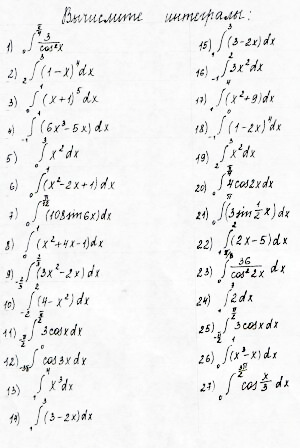 Вычислите интегралы:
1) ₀∫^(π/4) 3/cos²x dx
2) ₂∫³ (1-x)⁴dx
3) ₀∫¹ (x+1)⁵dx
4) ₋₁∫¹ (6x³-5x)dx
5) ₀∫³ x²dx
6) ₀∫¹ (x²-2x+1)dx
7) ₀∫^(π/12) (108sin6x)dx
8) ₀∫¹ (x²+4x-1)dx
9) ∫ (3x²-2x)dx
10) ₋₂∫² (4-x²)dx
11) ∫ 3cosxdx
12) ∫⁰ cos3xdx
13) ₁∫⁴ x³dx
14) ₁∫ (3-2x)dx
15) ₁∫³ (3-2x)dx
16) ₋₁∫² 3x²dx
17) ₁∫⁴ (x²+9)dx
18) ₋₁∫⁰ (1-2x)⁴dx
19) ₂∫³ x²dx
20) ∫ 4cos2xdx
21) ₀∫^π (3sin 1/2 x)dx
22) ∫² (2x-5)dx
23) ₀∫^(π/8) 36/cos²2x dx
24) ₁∫³ 2dx
25) ∫ 3cosxdx
26) ₀∫¹ (x³-x)dx
27) ₀∫^(3π/2) cos x/3 dx